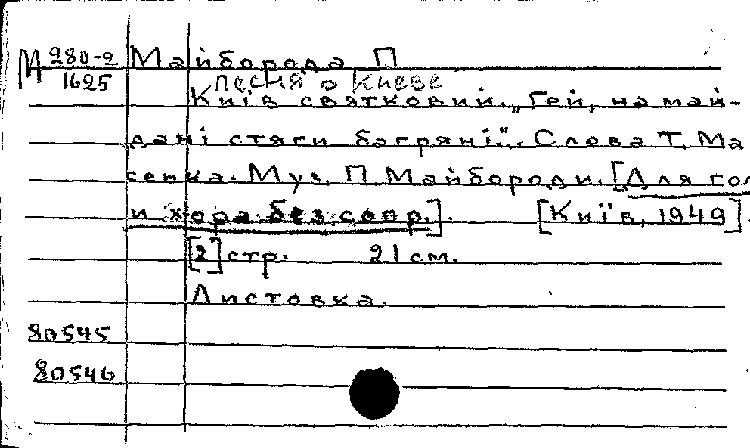 М 280-2 Майборода П
1625 песня о Киеве
Київ святковий. „Гей, на май-
дані стяги багряні". Слова Т. Ма
сенка. Муз. П. Майбороди. [Для гол
и хора без сопр.]. [Київ, 1949].
[2] стр. 21 см.
Листовка.
80545
80546